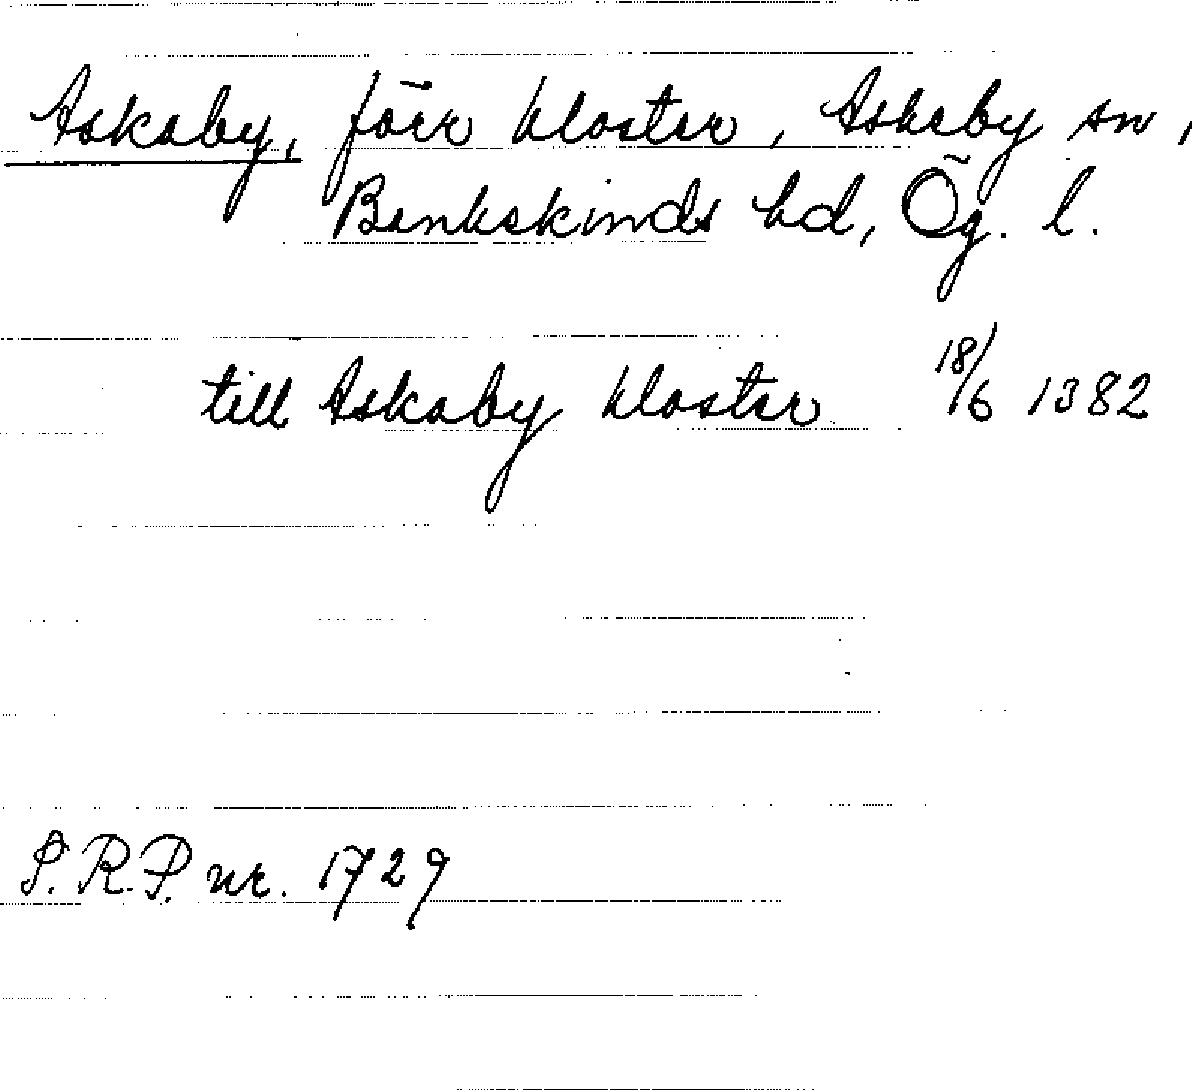 Askaby, förr kloster, Askeby sn,
Bankekinds hd, Ög. l.
till Askaby kloster 18/6 1382
S.R.P. nr. 1729